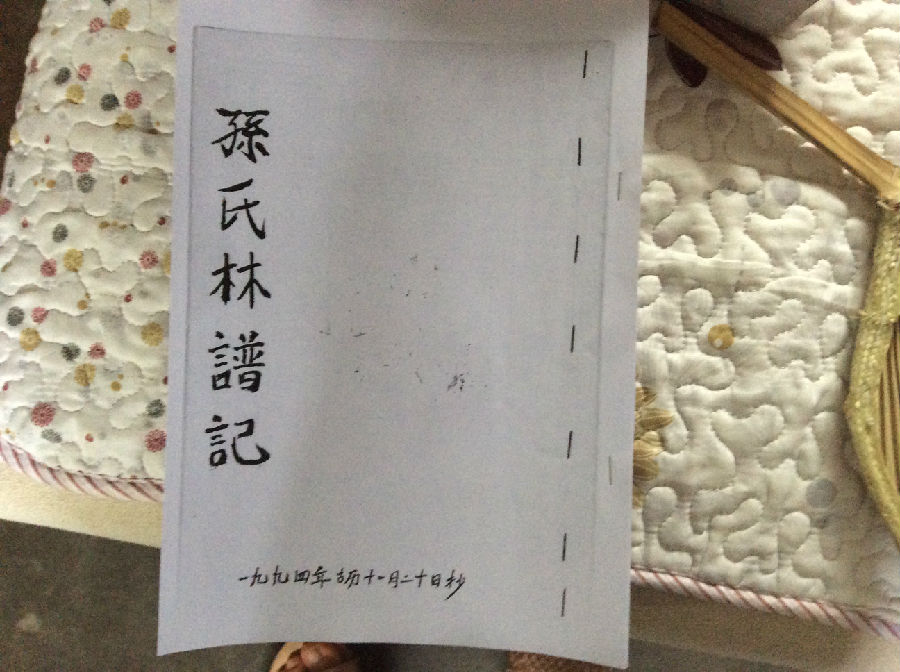 孫氏林譜記
一九九四年古历十一月二十日抄